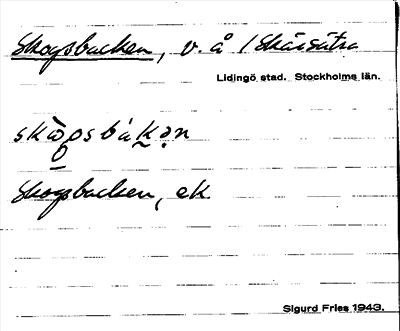 Skogsbacken, v. å /Skärsätra
Lidingö stad. Stockholms län.
Skogsbacken, ek.
Sigurd Fries 1943.